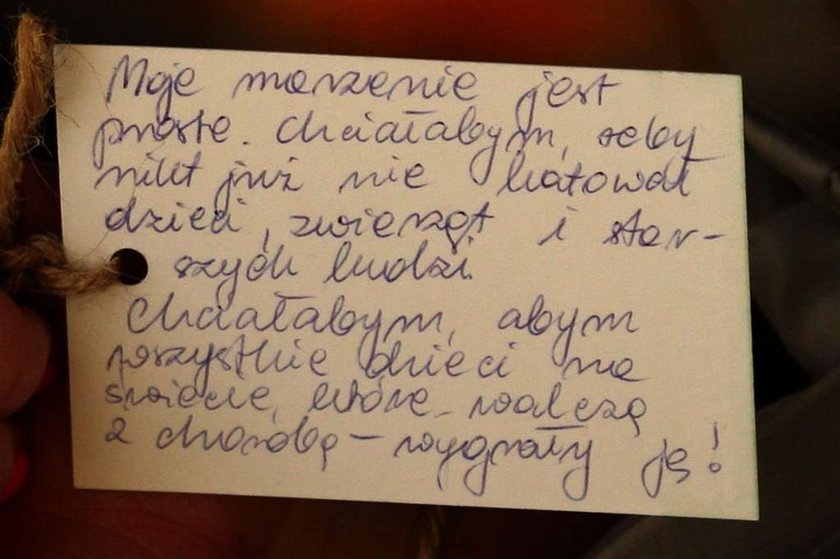 Moje marzenie jest
proste. Chciałabym, żeby
nikt już nie katował
dzieci, zwierząt i star-
szych ludzi.
Chciałabym, abym
wszystkie dzieci na
świecie, które walczą
z chorobą – wygrały ję!